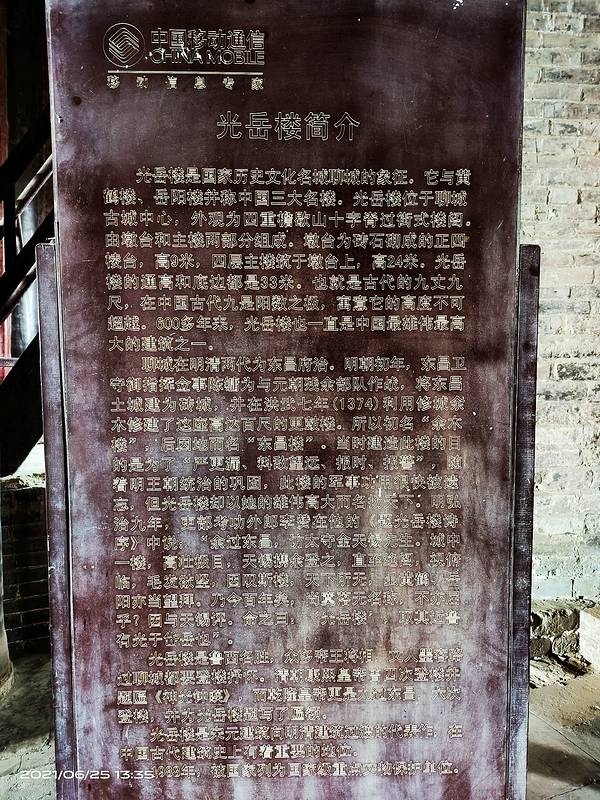 中国移动通信
CHINA MOBILE
移动信息专家
光岳楼简介
光岳楼是国家历史文化名城聊城的象征。它与黄
鹤楼、岳阳楼并称中国三大名楼。光岳楼位于聊城
古城中心，外观为四重檐歇山十字脊过街式楼阁。
由墩台和主楼两部分组成。墩台为砖石砌成的正四
棱台，高9米，四层主楼筑于墩台上，高24米。光岳
楼的通高和底边都是33米。也就是古代的九丈九
尺，在中国古代九是阳数之极，寓意它的高度不可
超越。600多年来，光岳楼也一直是中国最雄伟最高
大的建筑之一。
聊城在明清两代为东昌府治。明朝初年，东昌卫
守御指挥佥事陈镛为与元朝残余部队作战，将东昌
土城建为砖城，并在洪武七年(1374)利用修城余
木修建了这座高达百尺的更楼。所以初名“余木
楼”，后因地而名“东昌楼”。当时建造此楼的目
的是为了“严更漏、料敌望远、报时、报警”，随
着明王朝统治的巩固，此楼的军事功用很快被遗
忘，但光岳楼却以她的雄伟高大而名扬天下。明弘
治九年，吏部考功外郎李赞在他的《题光岳楼诗
序》中说，“余过东昌，访太守金天锡先生。城中
一楼，高壮极目，天锡携余登之，直至绝阁，
临，毛发欲竖，因叹斯楼，天下所无，虽黄鹤、岳
阳亦当望拜。乃今百年矣，尚寞落无名称，不亦屈
乎？因与天锡评，命之曰：“光岳楼”，取其近鲁
有光于岱岳也”。
光岳楼是鲁西名胜，众多帝王将相、文人墨客路
过聊城都要登楼抒怀。清朝康熙皇帝曾四次登楼并
题匾《神光钟暎》，而乾隆皇帝更是九过东昌，六次
登楼，并为光岳楼题写了匾额。
光岳楼是宋元建筑向明清建筑过渡的代表作，在
中国古代建筑史上有着重要的地位。
1988年，被国家列为国家级重点文物保护单位。
2021/06/25 13:35